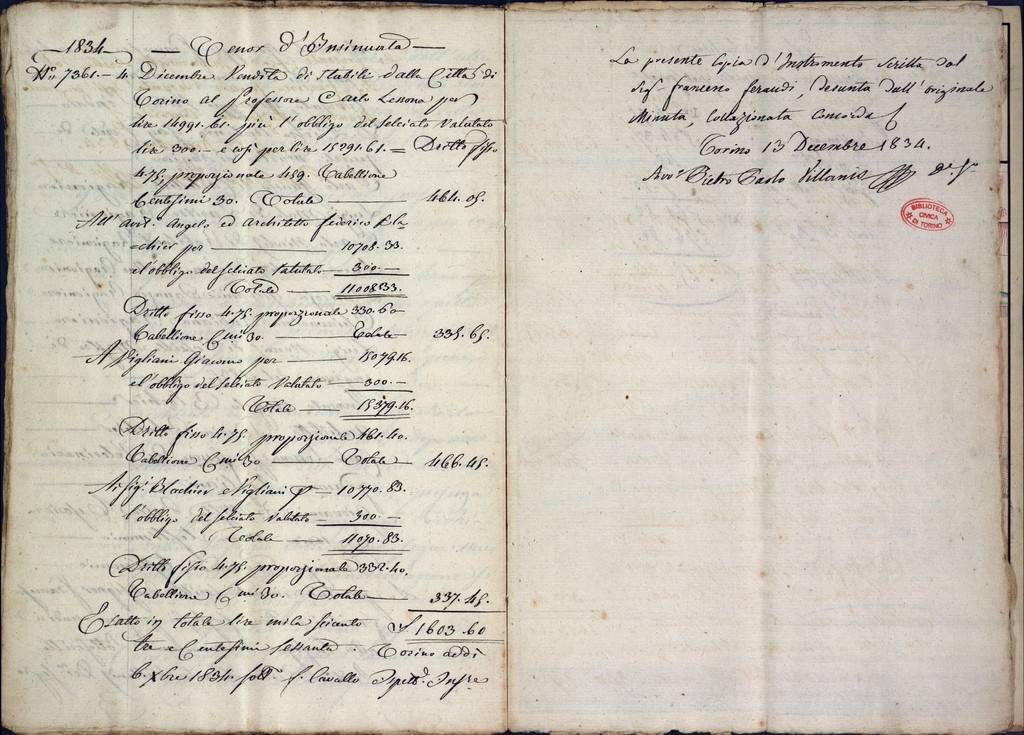 1834
— Tenor d'Insinuata —
N.° 7361. — 4 Dicembre Vendita di Stabili dalla Città di
Torino al Professore Carlo Lessona per
lire 14991. 61. più l'obbligo del selciato valutato
lire 300. — e così per lire 15291. 61. = Dritto fisso
4. 75, proporzionale 459. Tabellione
Centesimi 30. Totale — 464. 05.
All' Avv.° Angelo ed architetto federico Blo-
=chier per — 10708. 33.
e l'obbligo del selciato valutato — 300. —
Totale — 11008. 33.
Dritto fisso 4. 75. proporzionale 330. 60
Tabellione C.mi 30. — Totale — 335. 65.
A Vigliani Giacomo per — 15079. 16.
e l'obbligo del selciato valutato — 300. —
Totale — 15379. 16.
Dritto fisso 4. 75. proporzionale 461. 40.
Tabellione C.mi 30 — Totale — 466. 45.
Ai sig.i Blochier e Vigliani P — 10770. 83.
l'obbligo del selciato valutato — 300. —
Totale — 11070. 83.
Dritto fisso 4. 75. proporzionale 332. 40.
Tabellione C.mi 30. Totale — 337. 45.
Esatto in totale lire mila seicento £ 1603. 60
tre e Centesimi sessanta. Torino addì
6. Xbre 1834. sott.° f. Cavallo Ispett.e Insre
La presente Copia d'Instrumento scritta dal
Sig.r franceno feraudi, desunta dall'originale
Minuta, Collazionata Concorda
Torino 13 Decembre 1834.
Avv.° Pietro Paolo Villanis
BIBLIOTECA
CIVICA
DI TORINO